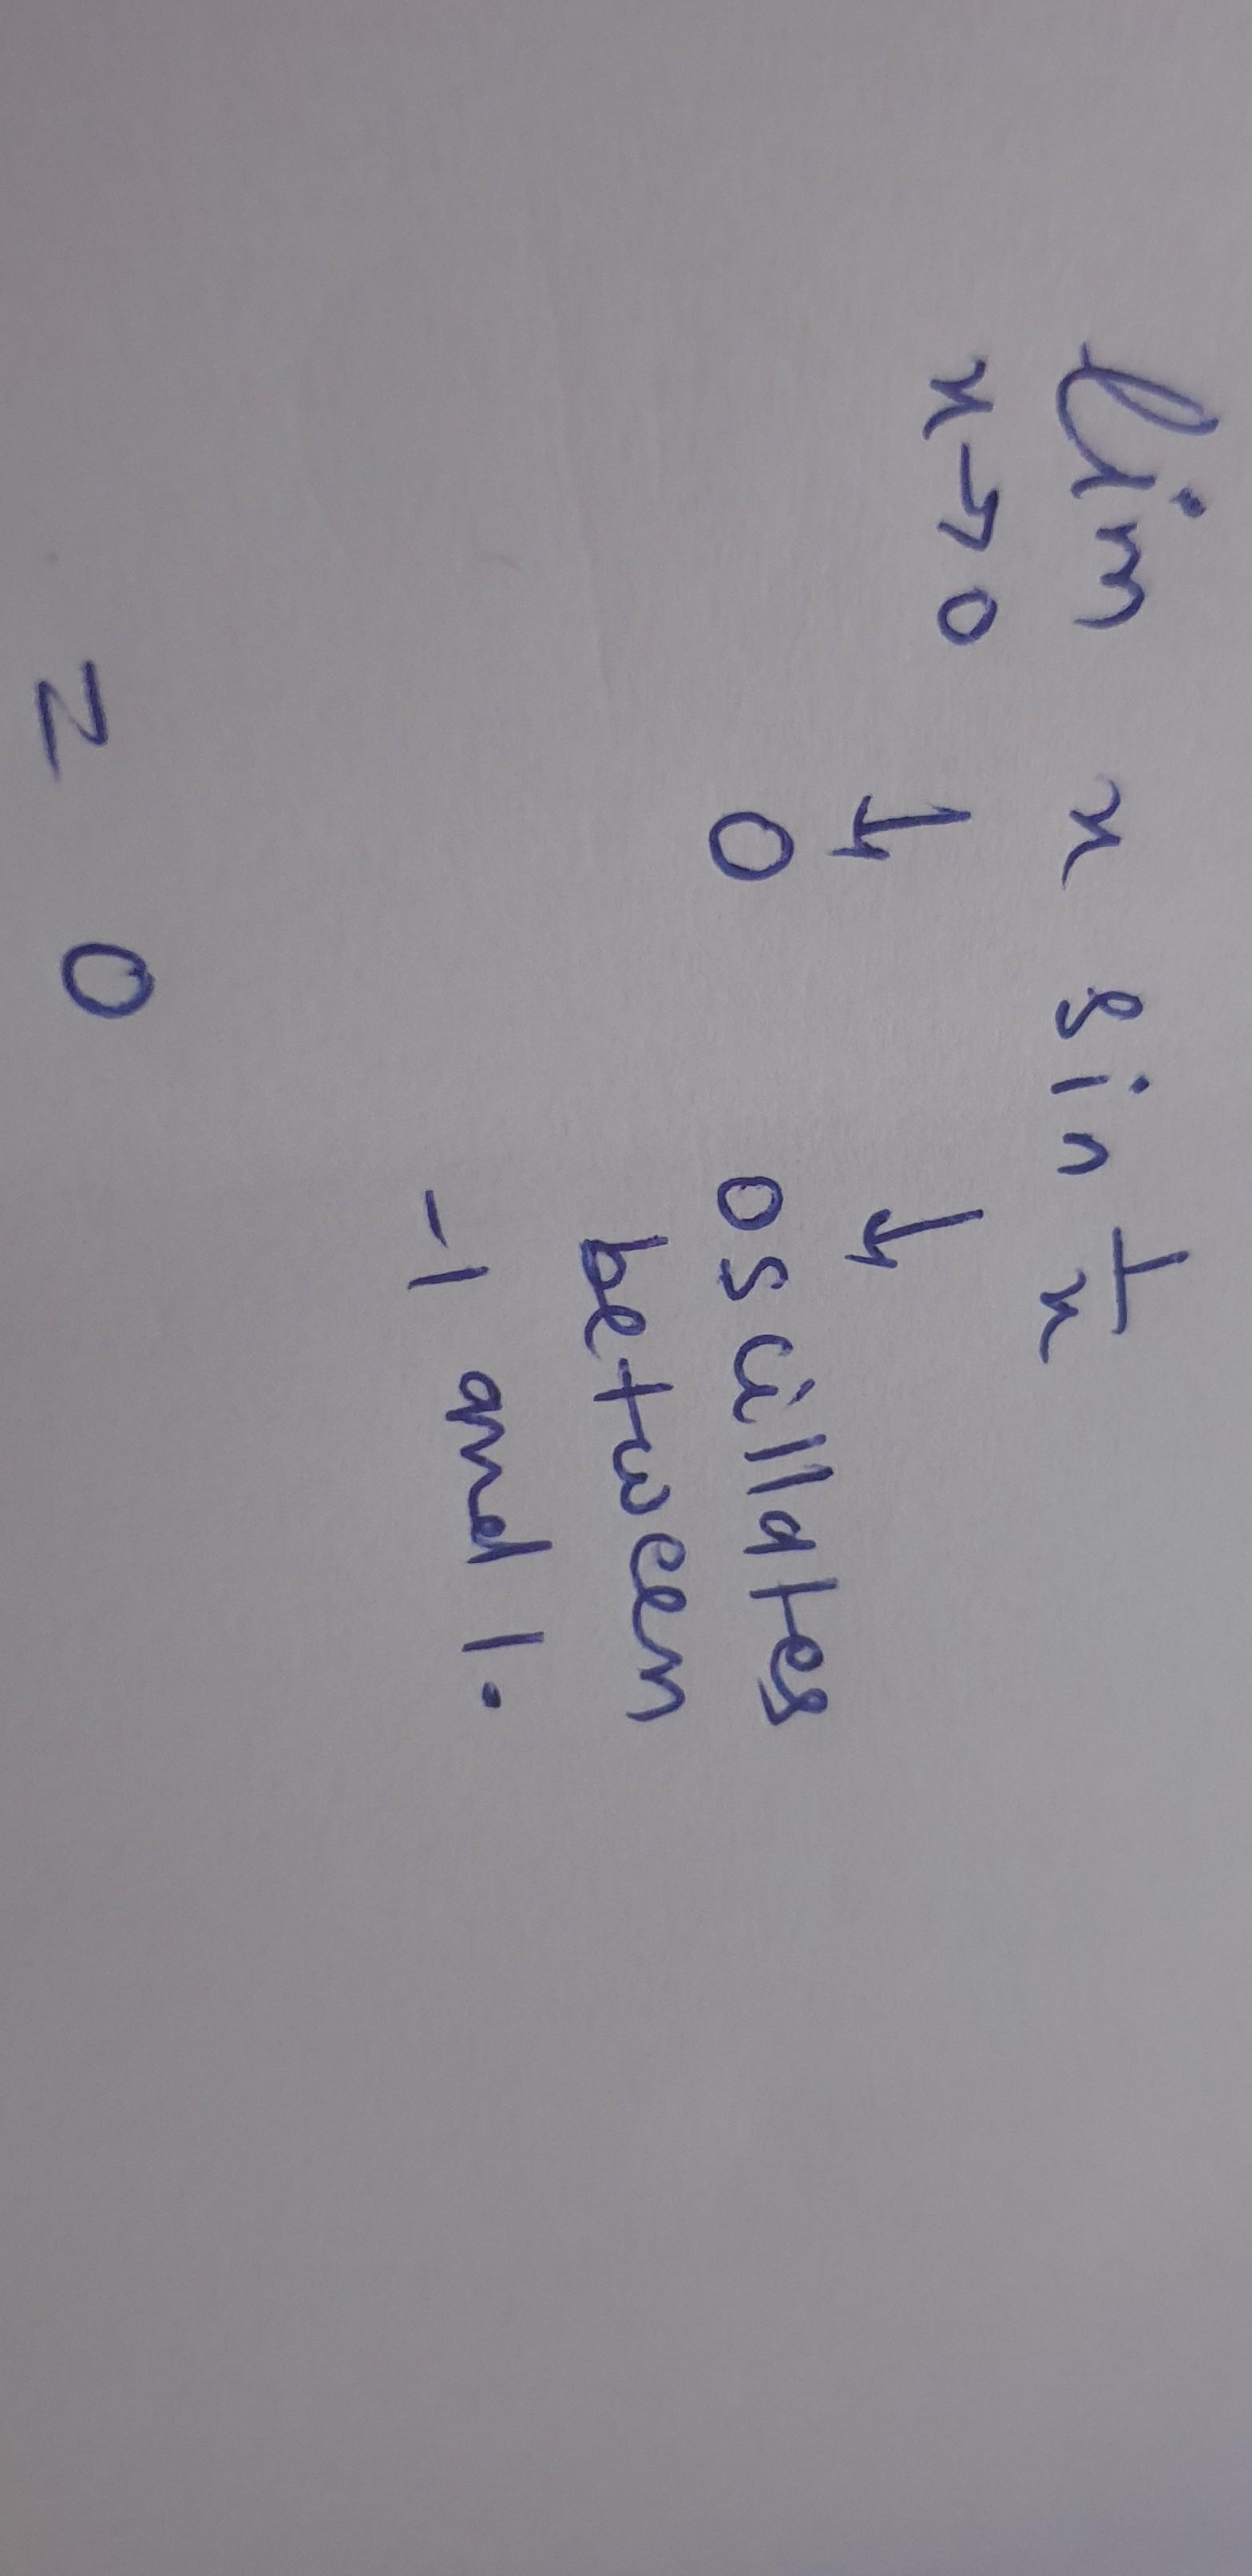 lim x sin 1/x
x→0
↓ ↓
0 oscillates
between
-1 and 1.
= 0